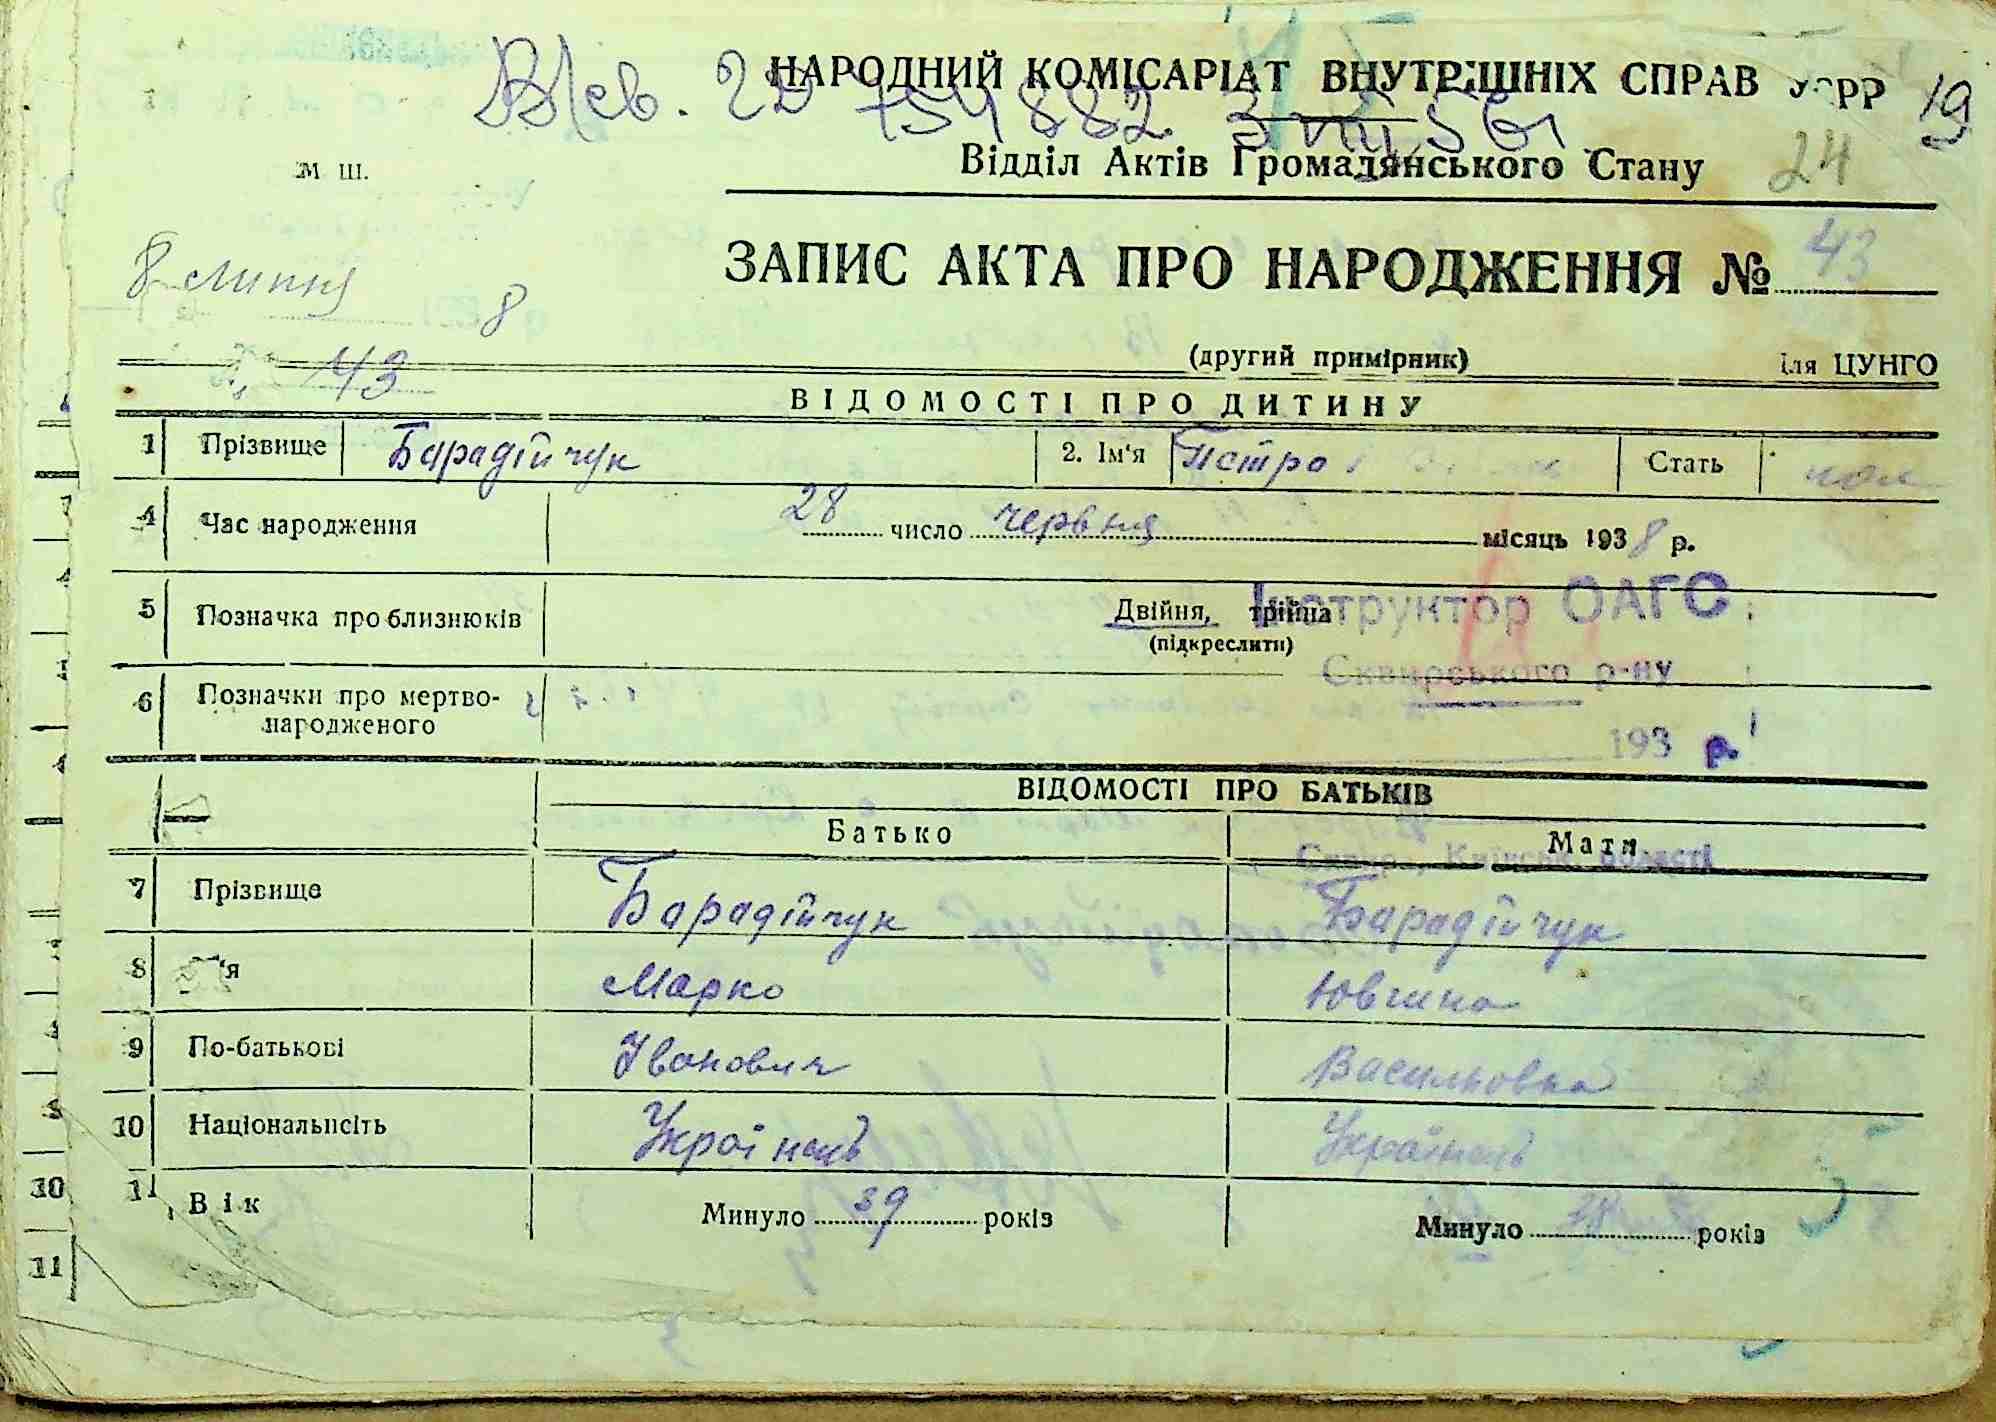 НАРОДНИЙ КОМІСАРІАТ ВНУТРІШНІХ СПРАВ УСРР 19
754882
Відділ Актів Громадянського Стану 24
М Ш.
8 липня 8
ЗАПИС АКТА ПРО НАРОДЖЕННЯ № 43
43
(другий примірник) для ЦУНГО
ВІДОМОСТІ ПРО ДИТИНУ
1 Прізвище Барадійчук 2. Ім'я Петро Стать чол
4 Час народження 28 число червня місяць 1938 р.
5 Позначка про близнюків Двійня, трійна
(підкреслити)
Інструктор ОАГС
Сквирського р-ну
6 Позначки про мертво-
народженого
193 р.
ВІДОМОСТІ ПРО БАТЬКІВ
Батько Мати
Сквира, Київськ. області
7 Прізвище Барадійчук Барадійчук
8 Ім'я Марко Ювгина
9 По-батькові Іванович Васильовна
10 Національність Українець Українець
11 Вік Минуло 39 років Минуло 38 років
10
11